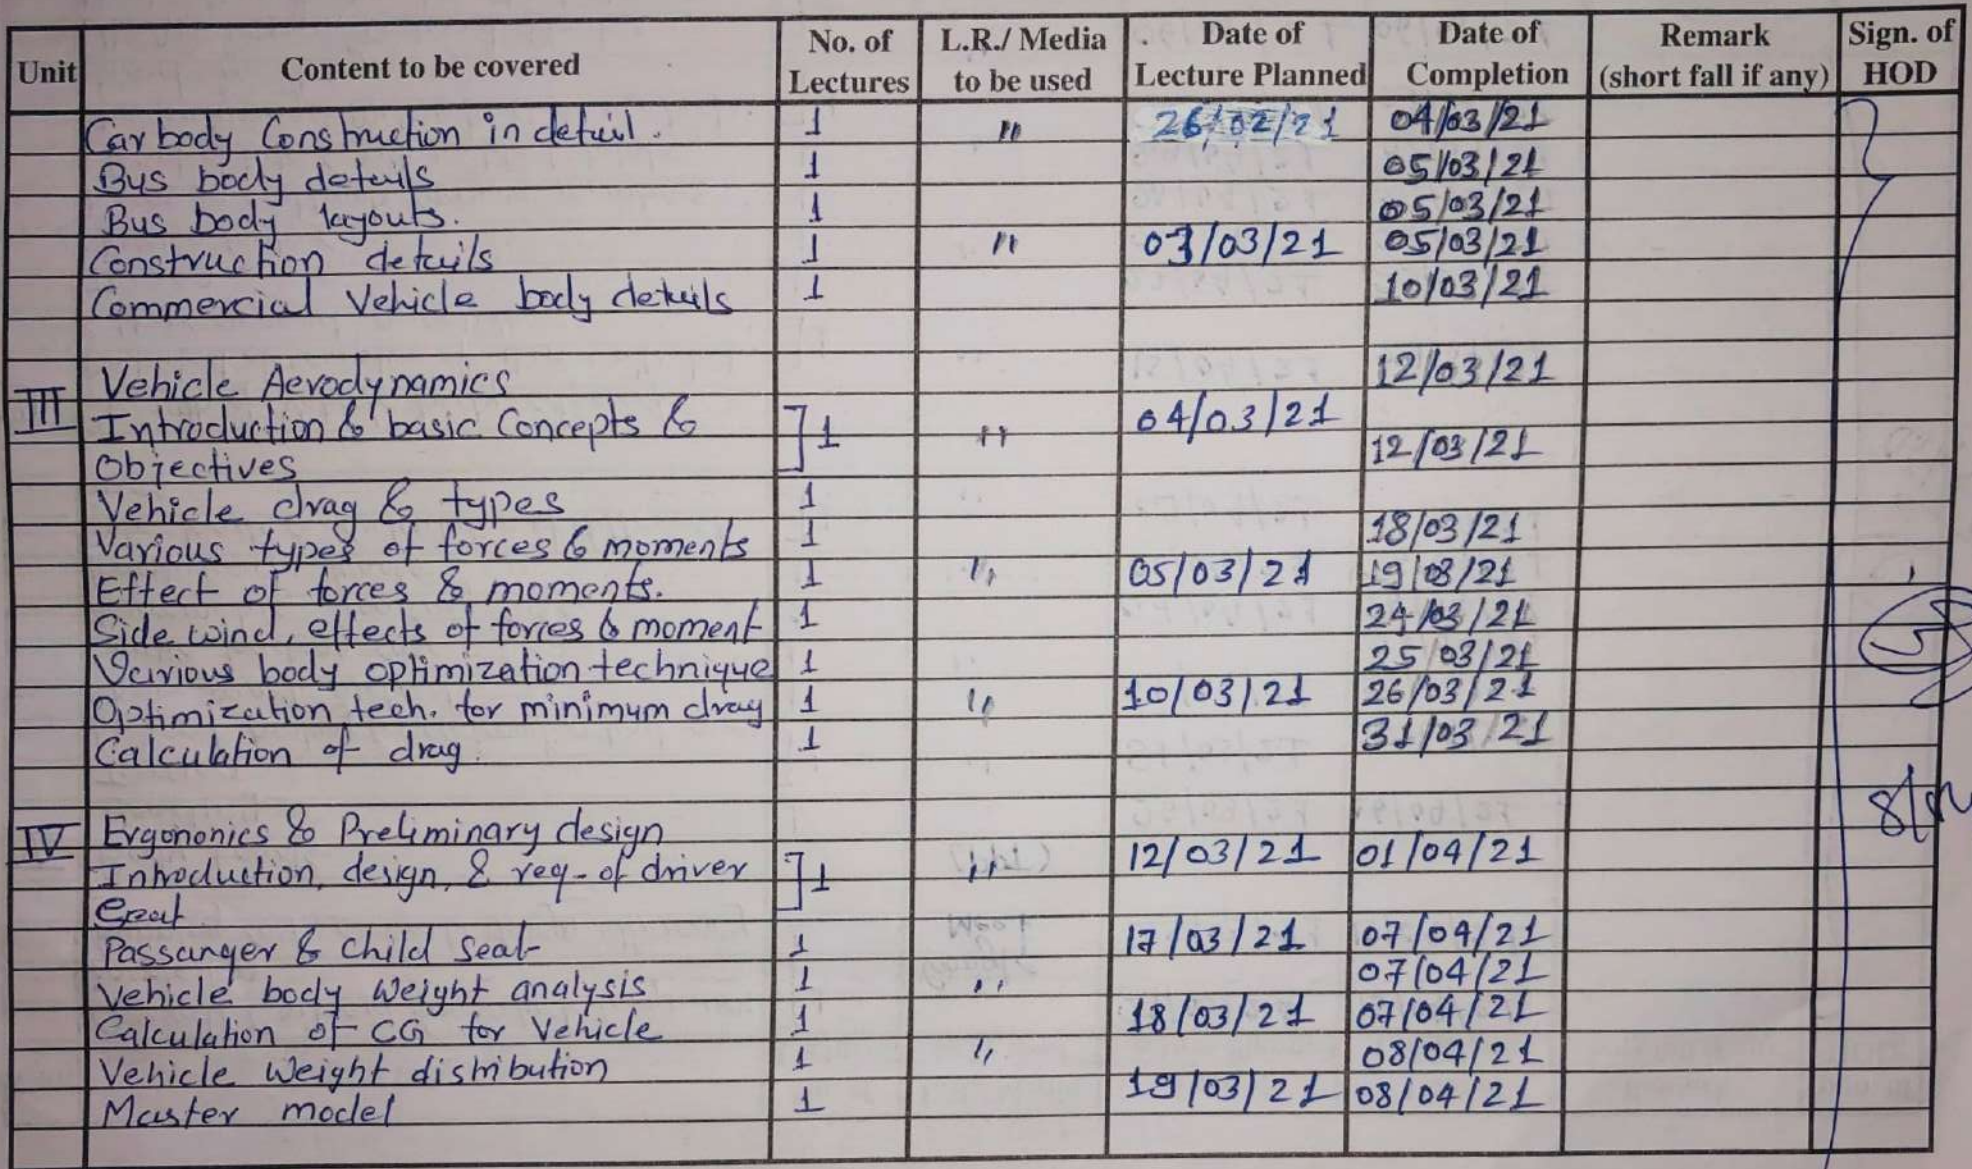 Unit Content to be covered No. of Lectures L.R./ Media to be used Date of Lecture Planned Date of Completion Remark (short fall if any) Sign. of HOD
Car body Construction in detail. 1 " 26/02/21 04/03/21
Bus body details 1 05/03/21
Bus body layouts. 1 05/03/21
Construction details 1 " 03/03/21 05/03/21
Commercial Vehicle body details 1 10/03/21
Vehicle Aerodynamics 12/03/21
III Introduction & basic Concepts & ] 1 " 04/03/21
Objectives 12/03/21
Vehicle drag & types 1
Various types of forces & moments 1 18/03/21
Effect of forces & moments. 1 " 05/03/21 19/03/21
Side wind, effects of forces & moment 1 24/03/21
Various body optimization technique 1 25/03/21
Optimization tech. for minimum drag 1 " 10/03/21 26/03/21
Calculation of drag. 1 31/03/21
IV Ergononics & Preliminary design
Introduction, design, & req. of driver ] 1 " 12/03/21 01/04/21
Seat
Passanger & Child Seat 1 17/03/21 07/04/21
Vehicle body Weight analysis 1 " 07/04/21
Calculation of CG for Vehicle 1 18/03/21 07/04/21
Vehicle Weight distribution 1 " 08/04/21
Master model 1 19/03/21 08/04/21